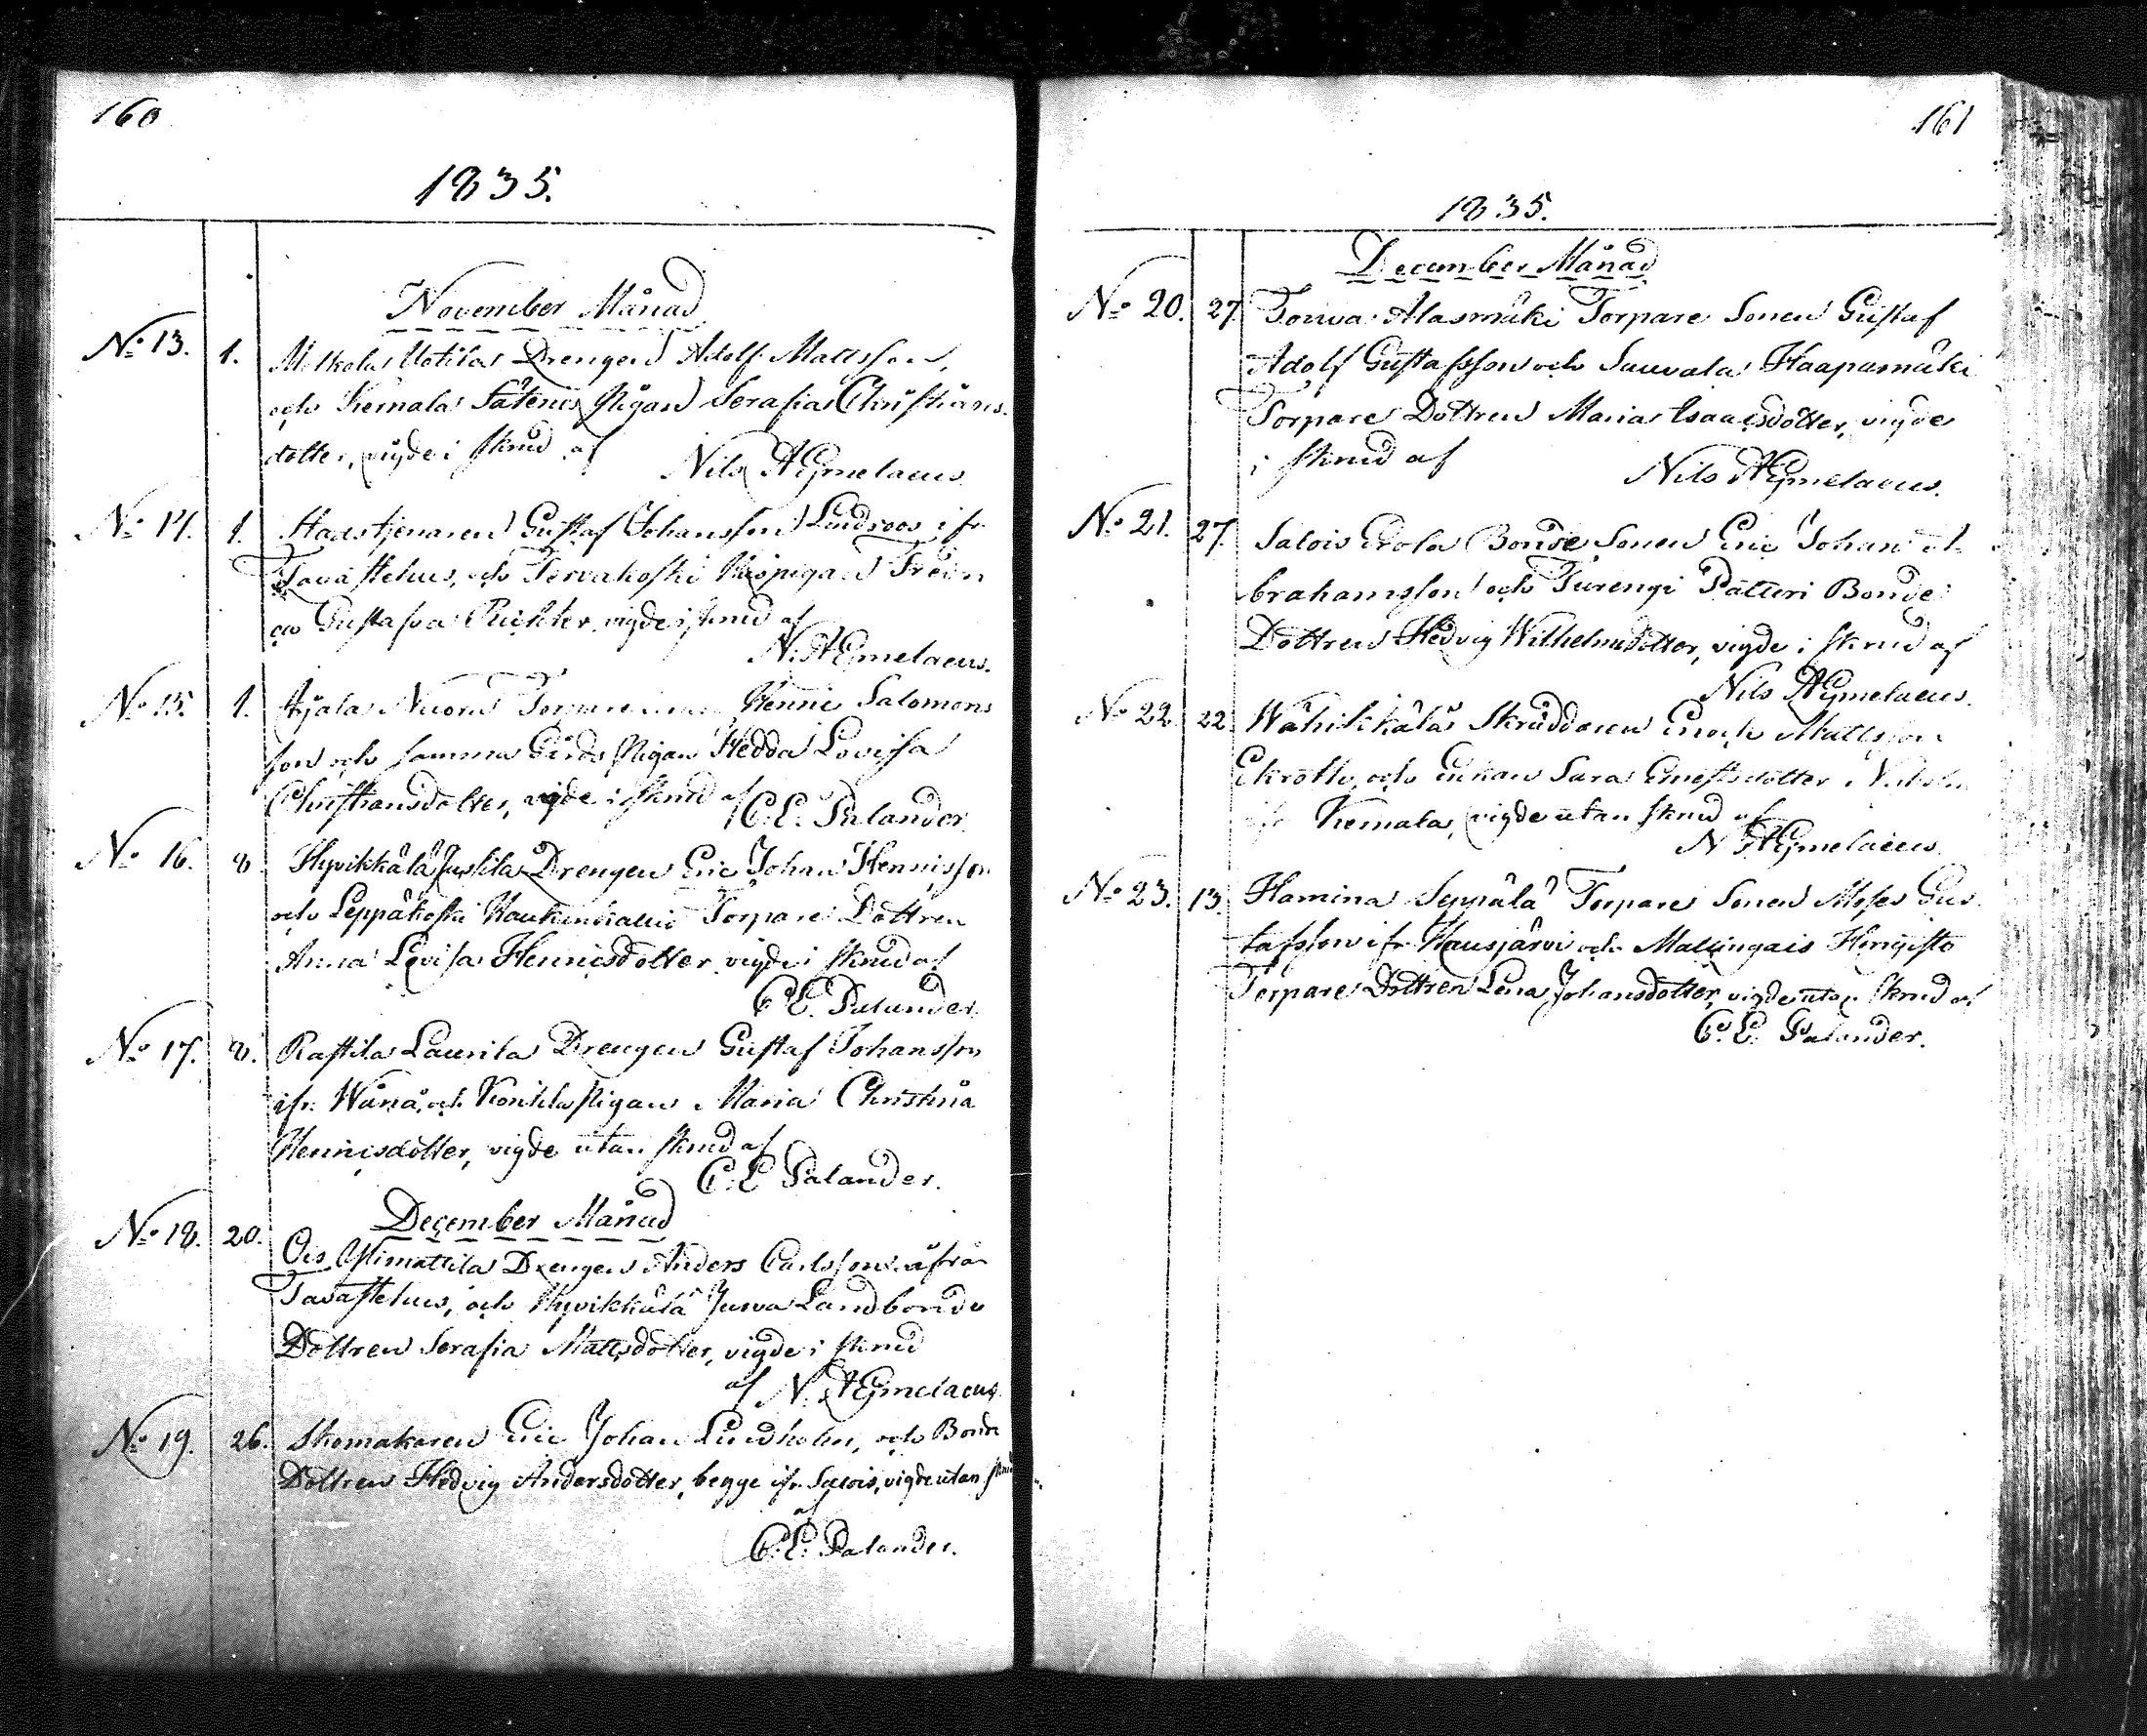 160
1835.
November Månad
No 13. 1. Uotila Drengen Adolf Mattsson,
och Kernala Såtenis Pigan Serafia Christians
dotter, vigde i skrud af
Nils Aejmelaeus
No 14. 1. Stadstjenaren Gustaf Johansson Lindroos ifr.
Tavastehus, och Tervakoski Pigan
Gustafva Richter, vigde i skrud af
N. Aejmelaeus.
No 15. 1. Nuoru Henric Salomons
son och samma Gårds Pigan Hedda Lovisa
Christiansdotter, vigde i skrud af
C. E. Palander.
No 16. 8. Hyvikkälä Jussila Drengen Eric Johan Henricsson
och Leppäkoski Torpare Dottren
Anna Lovisa Henricsdotter vigde i skrud af
C. E. Palander.
No 17. 8. Rastila Laurila Drengen Gustaf Johansson
ifr. Wånå, och Konttila Pigan Maria Christina
Henricsdotter, vigde utan skrud af
C. E. Palander.
December Månad
No 18. 20. Ois Ylimattila Drengen Anders Carlsson ifrån
Tavastehus, och Hyvikkälä Juwa Landbonde
Dottren Serafia Mattsdotter, vigde i skrud
af N. Aejmelaeus.
No 19. 26. Skomakaren Eric Johan Lindholm, och Bonde
Dottren Hedvig Andersdotter, begge ifr. Salois, vigde utan skrud
af
C. E. Palander.
161
1835.
December Månad
No 20. 27. Alasmäki Torpare Sonen Gustaf
Adolf Gustafsson och Sauvala Haapamäki
Torpare Dottren Maria Isaacsdotter, vigde
i skrud af Nils Aejmelaeus.
No 21. 27. Salois Erola Bonde Sonen Eric Johan A-
brahamsson och Turengi Pätteri Bonde
Dottren Hedvig Wilhelmsdotter, vigde i skrud af
Nils Aejmelaeus.
No 22. 22. Wähikkälä Skräddaren Enoch Mattsson
Ekroth, och Enkan Sara Ernestsdotter
ifr Kernala, vigde utan skrud af
N Aejmelaeus
No 23. 13. Hamina Seppälä Torpare Sonen Moses Gus
tafsson ifr. Hausjärvi och Mallingais Hongisto
Torpare Dottren Lena Johansdotter, vigde utan skrud af
C. E. Palander.